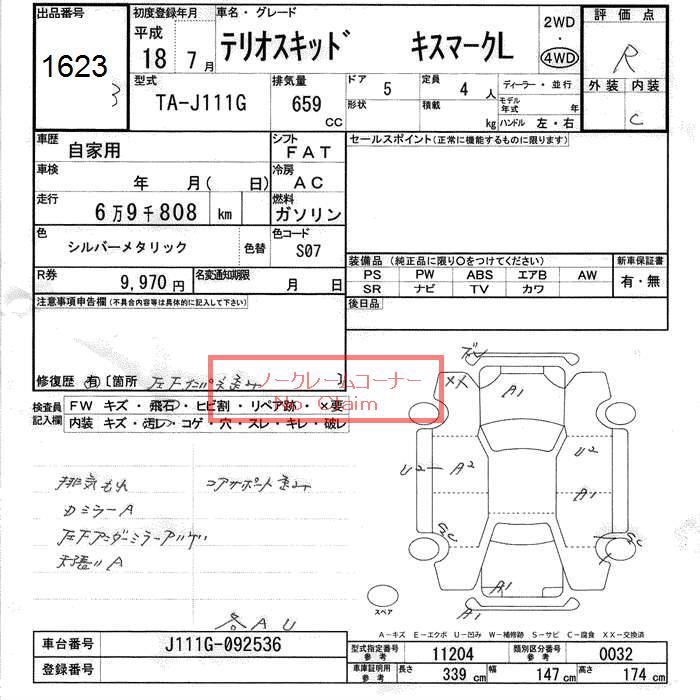 出品番号 初度登録年月 車名・グレード 2WD 評価点
1623 平成 18 7月 テリオスキッド キスマークL ・ 4WD R
3
型式 排気量 ドア 5 定員 4 人 ディーラー・並行 外装 内装
TA-J111G 659 CC 形状 積載 kg モデル年式 年 C
ハンドル 左・右
車歴 自家用 シフト FAT セールスポイント(正常に機能するものに限ります)
車検 年 月( 日) 冷房 AC
走行 6万9千808 km 燃料 ガソリン
色 シルバーメタリック 色替 色コード S07
装備品 (純正品に限り○をつけてください) 新車保証書
R券 9,970円 名変通知期限 月 日 PS PW ABS エアB AW 有・無
SR ナビ TV カワ
注意事項申告欄(不具合内容等は具体的に記入して下さい) 後日品
修復歴 有〔箇所
ノークレームコーナー
No Claim
検査員記入欄 FW キズ・飛石・ヒビ割・リペア跡 ×要
内装 キズ・汚レ・コゲ・穴・スレ・キレ・破レ
XX A1
U2 A2 U2
A1
排気もれ コアサポート歪み
Dミラー A
左下アンダーミラー
A
A1
スペア A1
各AU
A-キズ E-エクボ U-凹み W-補修跡 S-サビ C-腐食 XX-交換済
車台番号 J111G-092536 型式指定番号 参考 11204 類別区分番号 参考 0032
登録番号 車庫証明用 参考 長さ 339 cm 幅 147 cm 高さ 174 cm